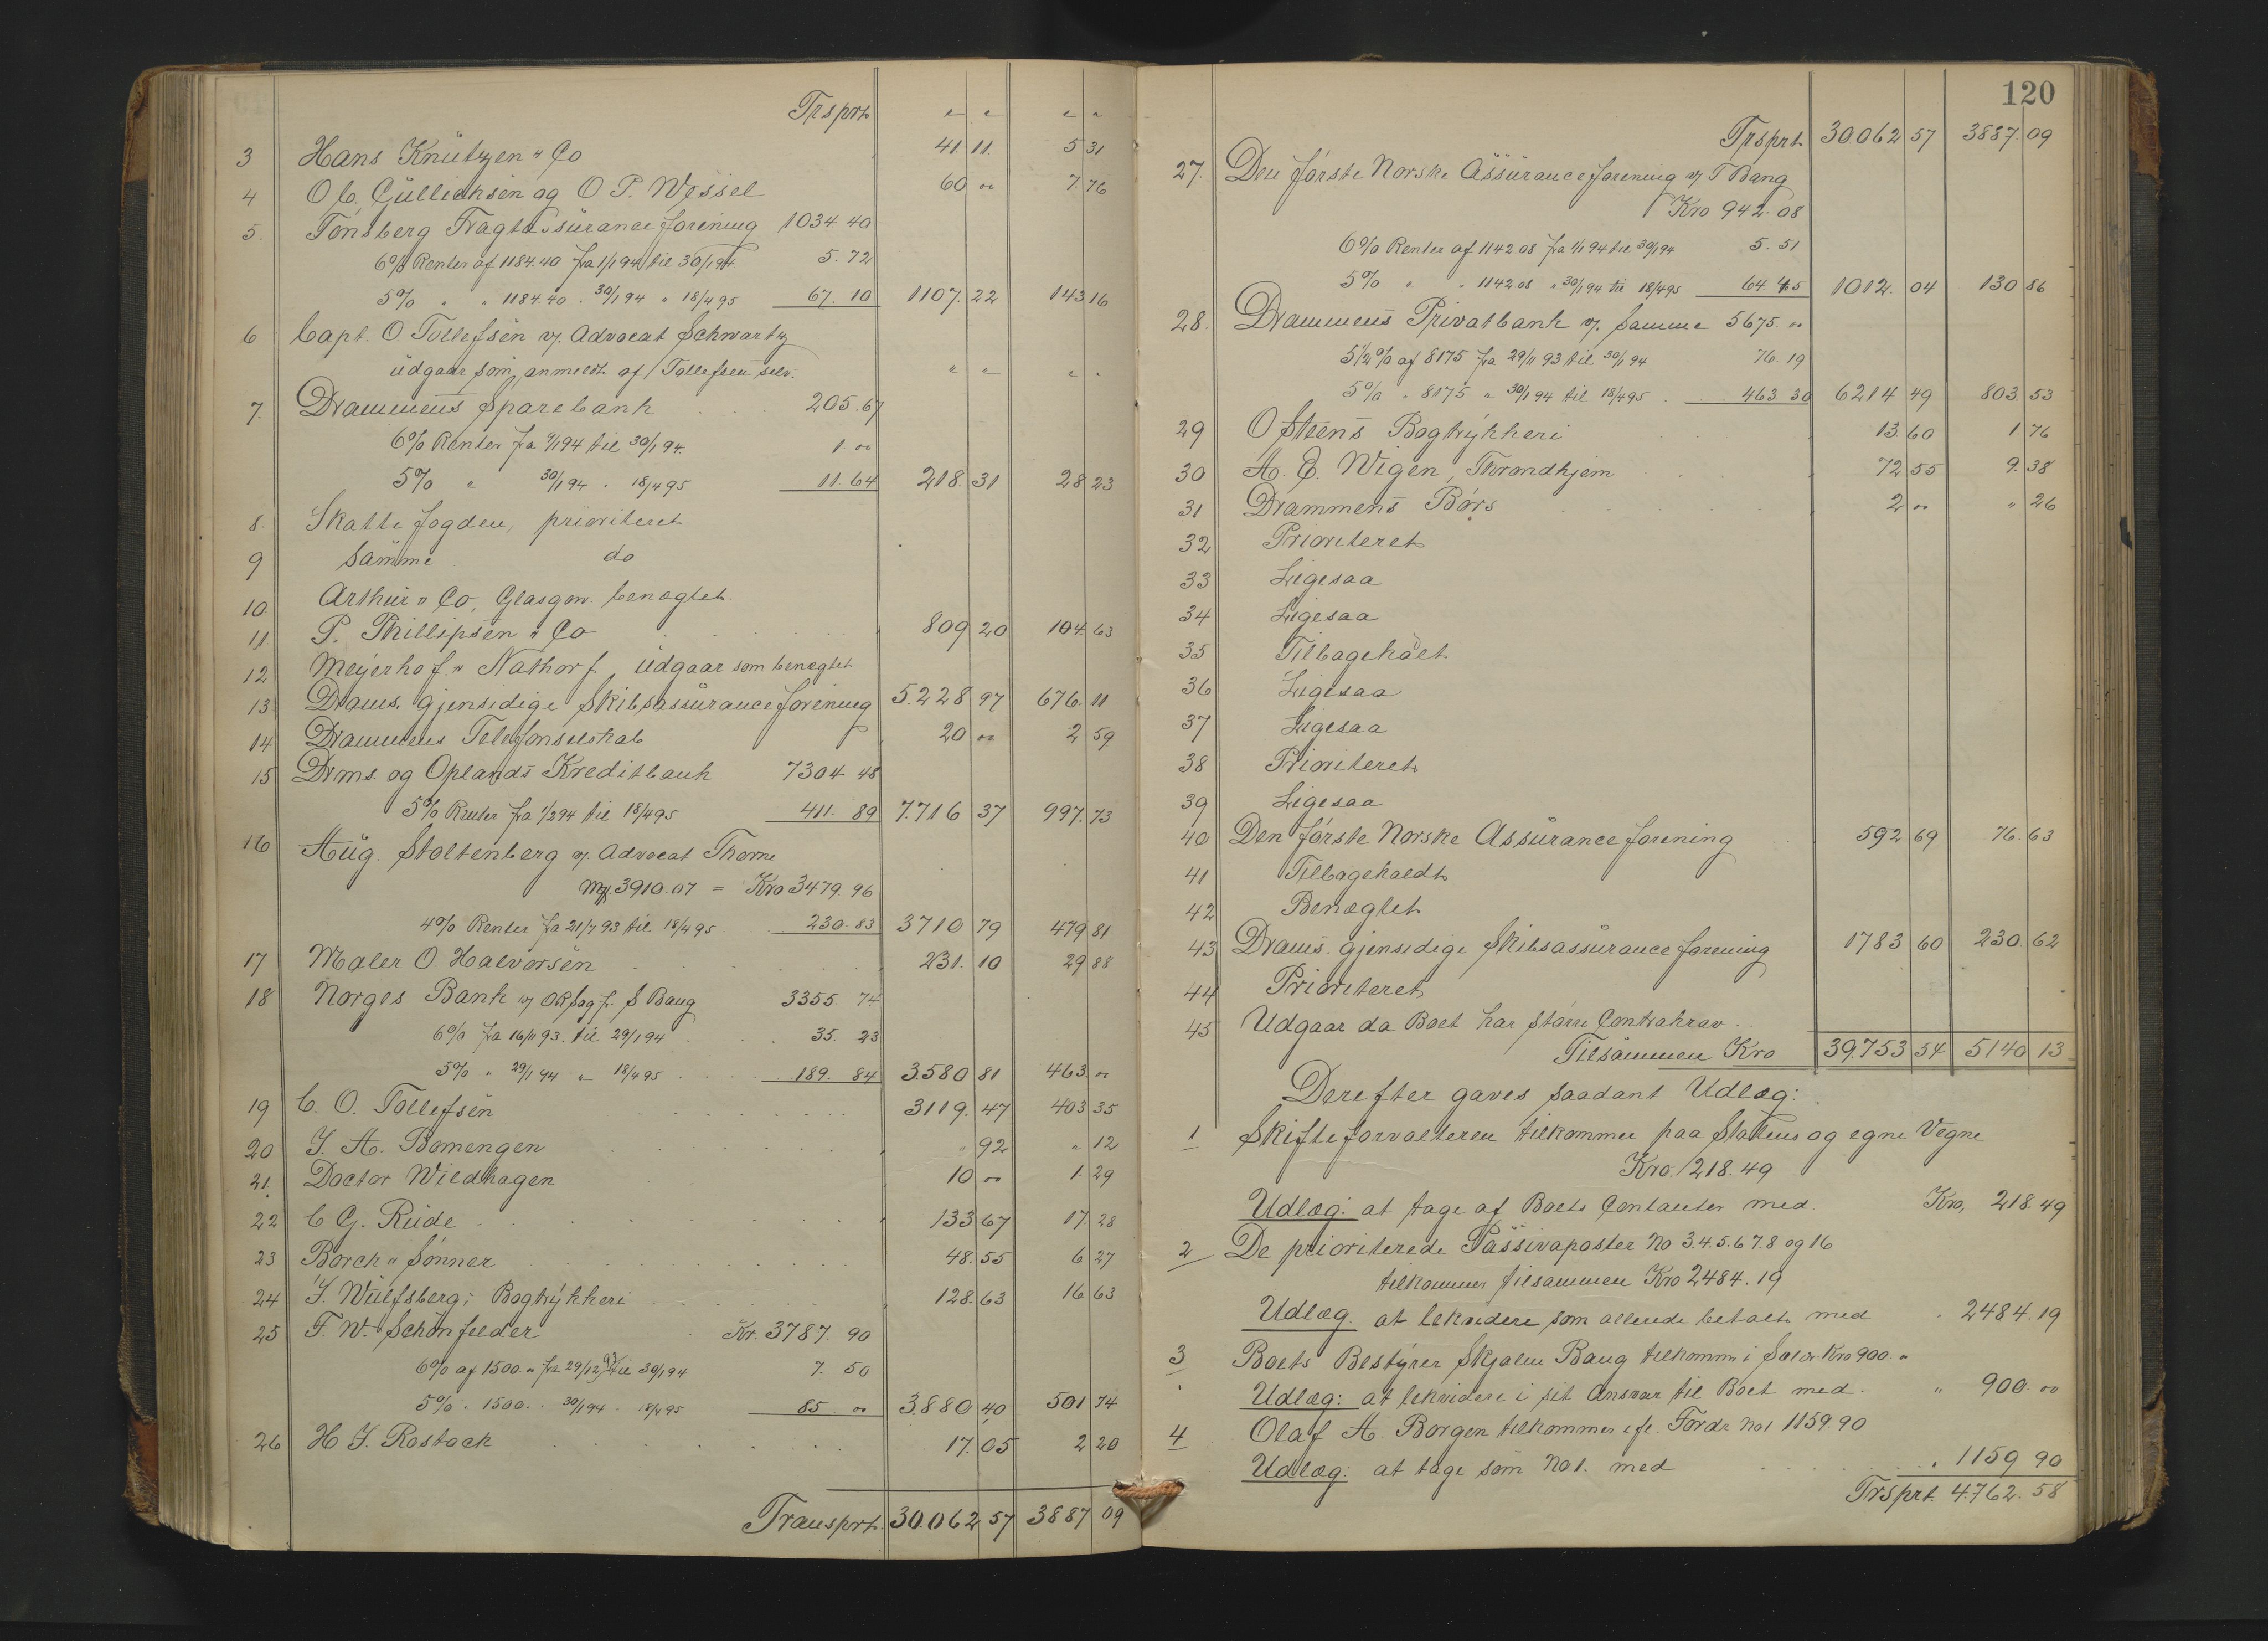 Trsprt. " " " "
3 Hans Knützen " Co 41 11. 5 31
4 O C. Güllichsen og O P. Wessel 60 " 7. 76
5. Tönsberg Fragtassuranceforening 1034 40
6% Renter af 1184.40 fra 1/1 94 til 30/1 94. 5. 72
5% " " 1184.40 " 30/1 94 " 18/4 95 67. 10 1107. 22 143 16
6 Capt. O. Tollefsen v/ Advocat Schwartz
udgaar som anmeldt af Tollefsen selv. " " " "
7. Drammens Sparebank 205. 67
6% Renter fra 1/1 94 til 30/1 94. 1. "
5% " 30/1 94 " 18/4 95 11. 64 218. 31 28 23
8. Skattefogden, prioriteret
9 Samme do
10. Arthur " Co, Glasgow. benægtet.
11. P. Phillipsen " Co 809 20 104. 63
12 Meyerhof " Nathorf. udgaar som benegtet
13 Drams. gjensidige Skibsassuranceforening 5.228 97 676. 11
14 Drammens Telefonselskab 20 " 2 59
15 Drms. og Oplands Kreditbank 7304 48
5% Renter fra 1/2 94 til 18/4 95 411. 89 7.716 37 997. 73
16 Aug. Stoltenberg v/ Advocat Thorne
Mk 3910.07 = Kro 3479 96
4% Renter fra 21/7 93 til 18/4 95 230. 83 3710 79 479 81
17 Maler O. Halvorsen 231. 10 29 88
18 Norges Bank v/ ORSagf. S Bang 3355. 74
6% fra 16/11 93. til 29/1 94 35. 23
5% " 29/1 94 " 18/4 95 189. 84 3.580 81 463. "
19 C. O. Tollefsen 3119. 47 403 35
20 J. A. Bomengen " 92 " 12
21. Doctor Wildhagen 10 " 1. 29
22 C G. Rude 133 67 17. 28
23 Borch " Sønner 48. 55 6 27
24 J. Wulfsberg; Bogtrykkeri 128. 63 16 63
25 F. W. Schönfelder Kr. 3787. 90
6% af 1500. " fra 29/12 93 til 30/1 94 7. 50
5% " 1500. " 30/1 94 " 18/4 95 85. " 3.880 40 501 74
26 H J. Rostock 17. 05 2 20
Transprt. 30.062 57 3887 09
120
Trsprt. 30.062 57 3887. 09
27. Den første Norske Assuranceforening v/ T Bang
Kro 942. 08
6% Renter af 1142.08 fra 1/1 94 til 30/1 94 5. 51
5% " " 1142.08 " 30/1 94 til 18/4 95 64. 45 1012. 04 130 86
28. Drammens Privatbank v/ Samme 5675. "
5 1/2% af 8175 fra 29/11 93 til 30/1 94 76. 19
5% " 8175 " 30/1 94 til 18/4 95 463 30 6214 49 803. 53
29 O Steens Bogtrykkeri 13. 60 1. 76
30 A. E. Wigen, Throndhjem 72 55 9. 38
31 Drammens Børs 2 " " 26
32 Prioriteret
33 Ligesaa
34 Ligesaa
35 Tilbagekaldt
36 Ligesaa
37 Ligesaa
38 Prioriteret
39 Ligesaa
40 Den første Norske Assuranceforening 592 69 76. 63
41 Tilbagekaldt
42 Benægtet
43 Drams. gjensidige Skibsassuranceforening 1783 60 230. 62
44 Prioriteret
45 Udgaar da Boet har større Contrakrav
Tilsammen Kro 39.753 54 5140 13
Derefter gaves saadant Udlæg:
1 Skifteforvalteren tilkommer paa Statens og egne Vegne
Kro. 218. 49
Udlæg: at tage af Boets Contanter med Kro, 218. 49
2 De prioriterede Passivaposter No 3.4.5.6.7.8 og 16
tilkommer tilsammen Kro 2484. 19
Udlæg. at lekvidere som allerede betalt med " 2484. 19
3 Boets Bestyrer Skjalm Bang tilkommer i Salær Kro 900. "
Udlæg: at lekvidere i sit Ansvar til Boet med. " 900. "
4 Olaf A. Borgen tilkommer efr. Fordr No 1 1159. 90
Udlæg: at tage som No 1. med " 1159 90
Trsprt. 4.762. 58